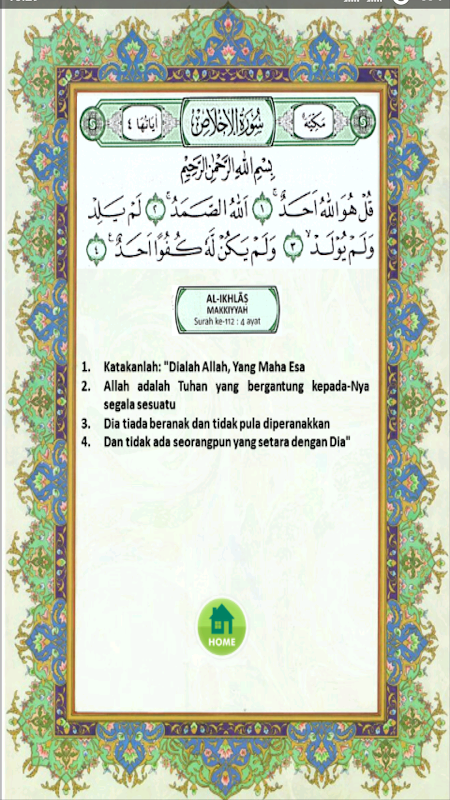 مَكِّيَّةٌ سُورَةُ الْإِخْلَاصِ اٰيَاتُهَا ٤
بِسْمِ اللهِ الرَّحْمٰنِ الرَّحِيْمِ
قُلْ هُوَ اللهُ اَحَدٌ ۚ ١ اَللهُ الصَّمَدُ ۚ ٢ لَمْ يَلِدْ
وَلَمْ يُوْلَدْ ۙ ٣ وَلَمْ يَكُنْ لَّهٗ كُفُوًا اَحَدٌ ۚ ٤
AL-IKHLĀṢ
MAKKIYYAH
Surah ke-112 : 4 ayat
1. Katakanlah: "Dialah Allah, Yang Maha Esa
2. Allah adalah Tuhan yang bergantung kepada-Nya
segala sesuatu
3. Dia tiada beranak dan tidak pula diperanakkan
4. Dan tidak ada seorangpun yang setara dengan Dia"
HOME